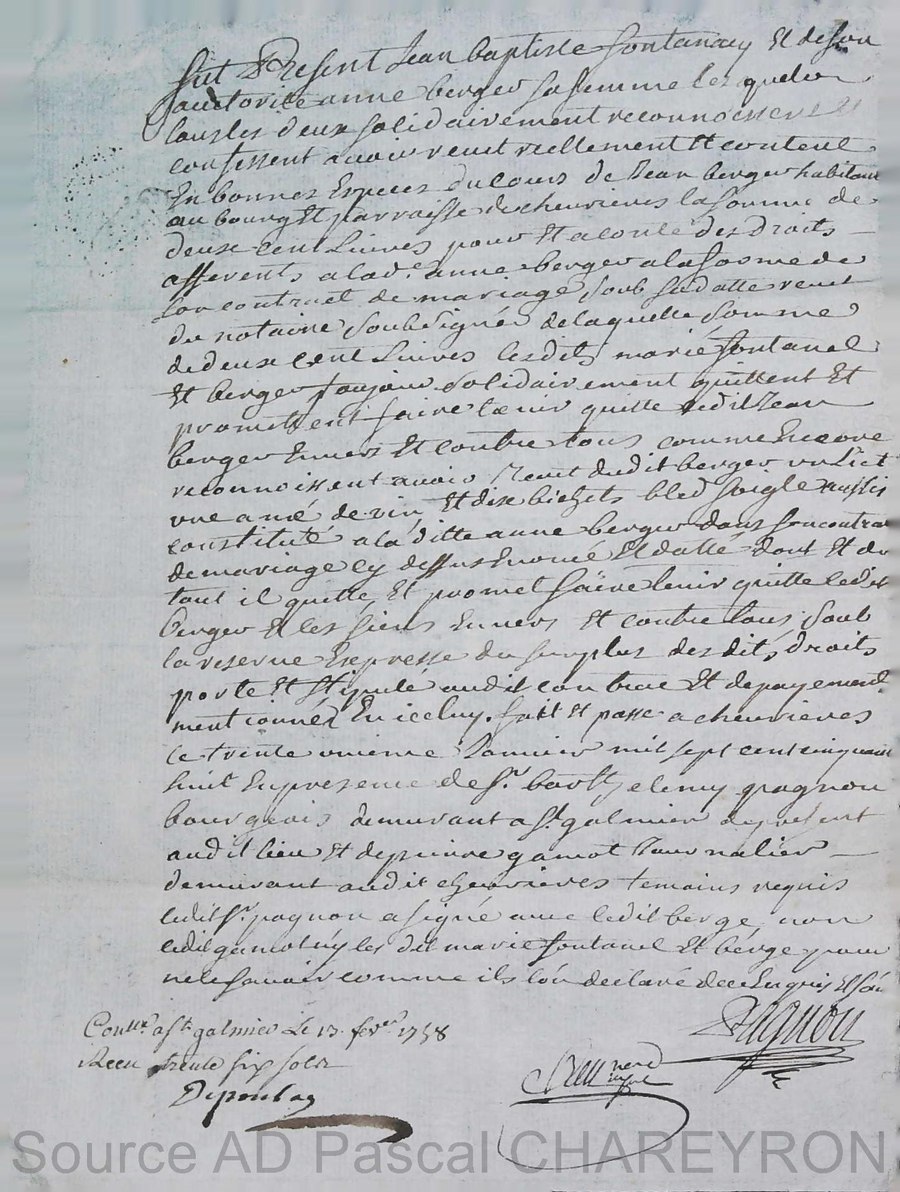 fut Present Jean baptiste fontanay Et de son
authorite anne berger sa femme lesquels
tous les deux solidairement reconnoissent Et
confessent avoir reçut reellement Et content
En bonnes Especes du cours de Jean berger habitant
au bourg Et parroisse de chevrieres la somme de
deux cent Livres pour Et a conte des droits
afferents a lad.e anne berger a la forme de
son contract de mariage soub sa datte recut
du notaire soubsigné de laquelle somme
de deux cent Livres lesdits marié fontanel
Et berger toujour solidairement quittent Et
promettent faire tenir quitte ledit Jean
berger Envers Et contre tous comme Encore
reconnoissent avoir Recut dudit berger un Lict
une anée de vin Et dix bichets bled seigle
constitué a la ditte anne berger dans son contrat
de mariage cy dessus Enoncé Et datté dont Et du
tout il quitte Et promet faire tenir quitte ledit
berger Et les siens Envers Et contre tous soub
la reserve Expresse du surplus des dits droits
porté Et stipulé audit contrac Et de payement
mentionnés En iceluy. fait Et passé a chevrieres
le trente unieme Janvier mil sept cent cinquante
huit En presence de Sr. barthelemy pagnon
bourgeois demurant a St. galmier de present
audit lieu Et de pierre gamot Journalier
demurant audit chevrieres temoins requis
ledit Sr. pagnon a signé avec ledit berge non
ledit gamot n'y les dit marie fontanel Et berge pour
ne le savoir comme ils l'on declaré de ce Enquis Et
Pagnon
Conttr. a St. galmier Le 13. fevr. 1758
Recu trente six sols
Source AD Pascal CHAREYRON